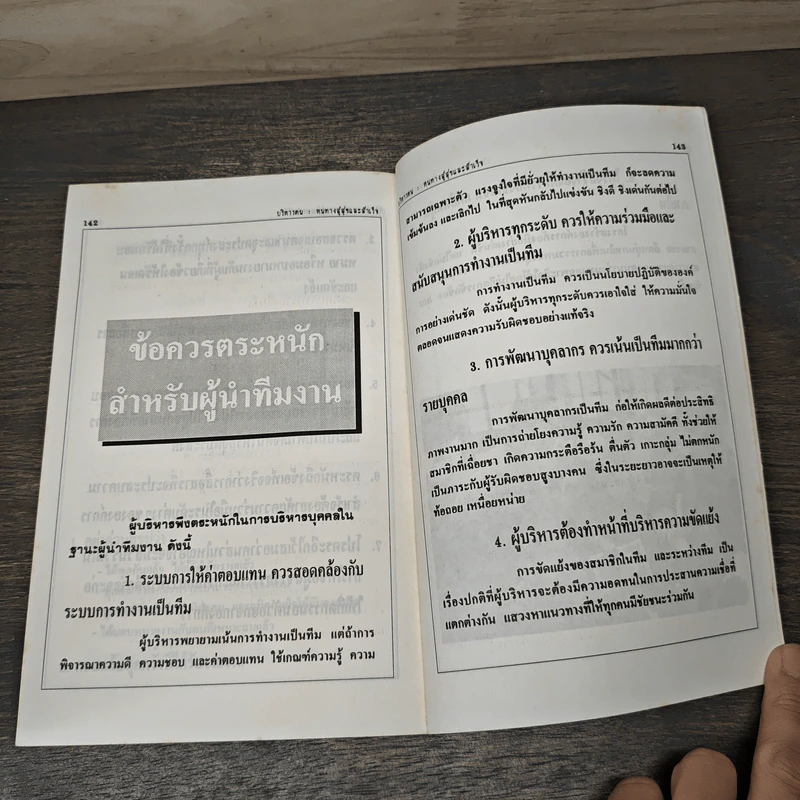 142
บริหารคน : หนทางสู่สุขและสำเร็จ
ข้อควรตระหนัก
สำหรับผู้นำทีมงาน
ผู้บริหารพึงตระหนักในการบริหารบุคคลใน
ฐานะผู้นำทีมงาน ดังนี้
1. ระบบการให้ค่าตอบแทน ควรสอดคล้องกับ
ระบบการทำงานเป็นทีม
ผู้บริหารพยายามเน้นการทำงานเป็นทีม แต่ถ้าการ
พิจารณาความดี ความชอบ และค่าตอบแทน ใช้เกณฑ์ความรู้ ความ
บริหารคน : หนทางสู่สุขและสำเร็จ
143
สามารถเฉพาะตัว แรงจูงใจที่มียั่วยุให้ทำงานเป็นทีม ก็จะลดความ
เข้มข้นลง และเลิกไป ในที่สุดหันกลับไปแข่งขัน ชิงดี ชิงเด่นกันต่อไป
2. ผู้บริหารทุกระดับ ควรให้ความร่วมมือและ
สนับสนุนการทำงานเป็นทีม
การทำงานเป็นทีม ควรเป็นนโยบายปฏิบัติขององค์
การอย่างเด่นชัด ดังนั้นผู้บริหารทุกระดับควรเอาใจใส่ ให้ความมั่นใจ
ตลอดจนแสดงความรับผิดชอบอย่างแท้จริง
3. การพัฒนาบุคลากร ควรเน้นเป็นทีมมากกว่า
รายบุคคล
การพัฒนาบุคลากรเป็นทีม ก่อให้เกิดผลดีต่อประสิทธิ
ภาพงานมาก เป็นการถ่ายโยงความรู้ ความรัก ความสามัคคี ทั้งช่วยให้
สมาชิกที่เฉื่อยชา เกิดความกระตือรือร้น ตื่นตัว เกาะกลุ่ม ไม่ตกหนัก
เป็นภาระกับผู้รับผิดชอบสูงบางคน ซึ่งในระยะยาวอาจจะเป็นเหตุให้
ท้อถอย เหนื่อยหน่าย
4. ผู้บริหารต้องทำหน้าที่บริหารความขัดแย้ง
การขัดแย้งของสมาชิกในทีม และระหว่างทีม เป็น
เรื่องปกติที่ผู้บริหารจะต้องมีความอดทนในการประสานความเชื่อที่
แตกต่างกัน แสวงหาแนวทางที่ให้ทุกคนมีชัยชนะร่วมกัน